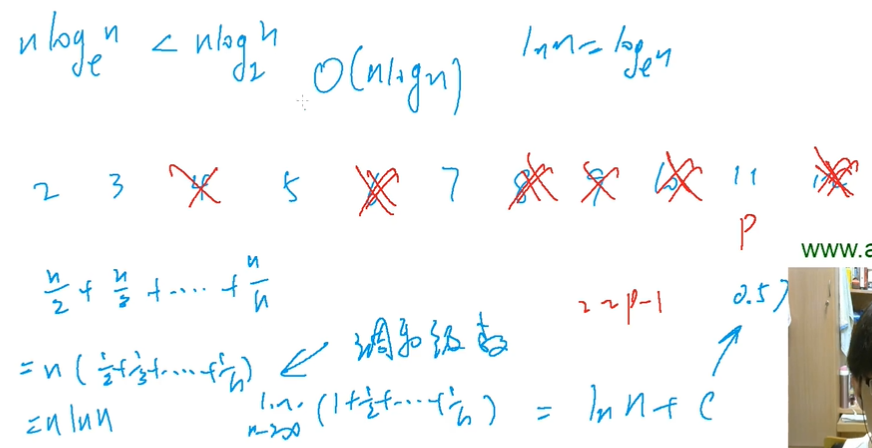 n log_e n < n log_2 n
O(n log n)
ln n = log_e n
2 3 4 5 6 7 8 9 10 11 12
P
www.a
n/2 + n/3 + ····· + n/n
2~p-1
0.57
= n ( 1/2 + 1/3 + ····· + 1/n ) ← 调和级数
= n ln n
lim n→∞ ( 1 + 1/2 + ···· + 1/n ) = ln n + C